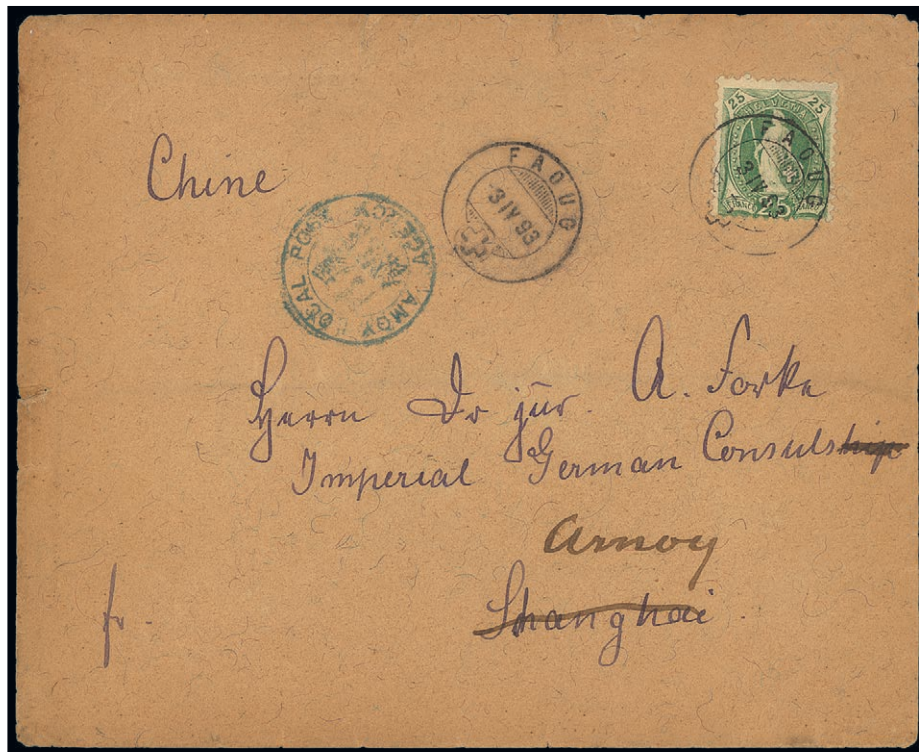 25 HELVETIA 25
25
FAOUG
3 IV 93
FAOUG
-3 IV 93
Chine
AMOY LOCAL POST AGENCY
Herrn Dr jur. A. Forke
Imperial German Consulship
Amoy
Shanghai
fr.